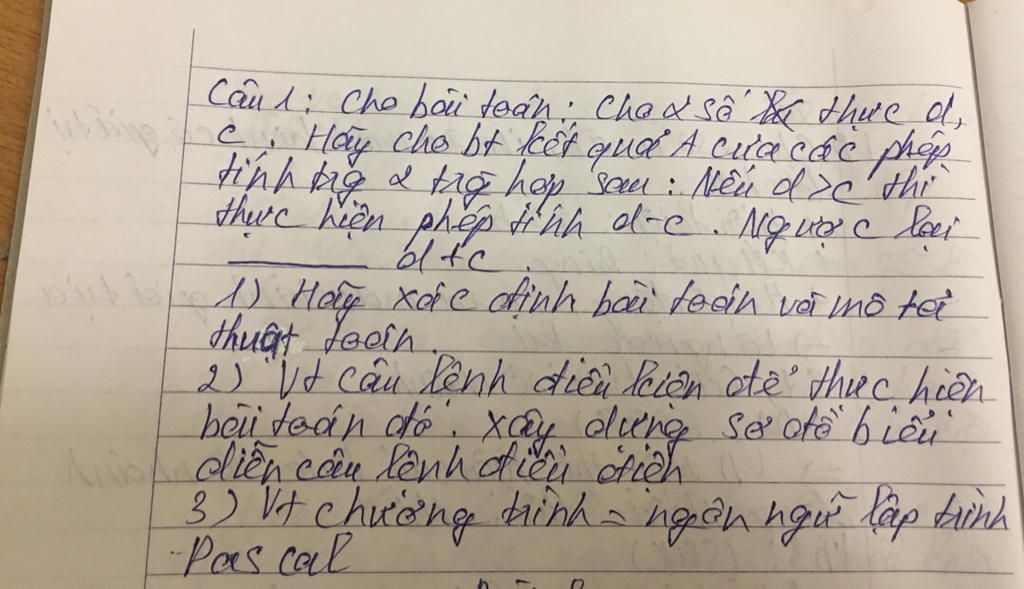 Câu 1: Cho bài toán: Cho 2 số thực d,
c. Hãy cho bt kết quả A của các phép
tính trg 2 trg hợp sau: Nếu d>c thì
thực hiện phép tính d-c. Ngược lại
_______ d+c.
1) Hãy xác định bài toán và mô tả
thuật toán.
2) Vt câu lệnh điều kiện để thực hiện
bài toán đó. Xây dựng sơ đồ biểu
diễn câu lệnh điều điện
3) Vt chương trình = ngôn ngữ lập trình
Pascal